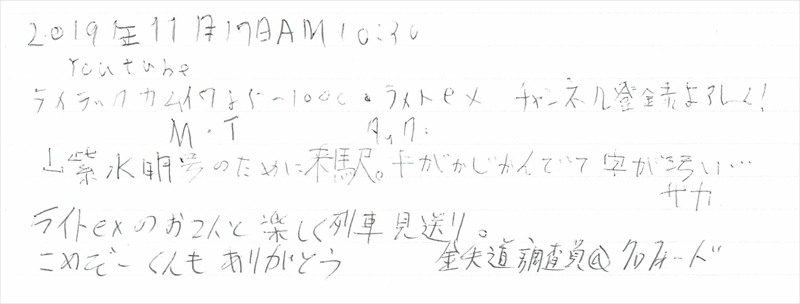 2019年11月17日AM10:30
Youtube
ライラックカムイワよぐ〜1000・ライトex チャンネル登録よろしく!
M・T タック:
山紫水明号のために来駅。手がかじかんでて字が汚い…
ザカ
ライトexのお2人と楽しく列車見送り。
こめぞーくんもありがとう 金失道調査員@クロフォード